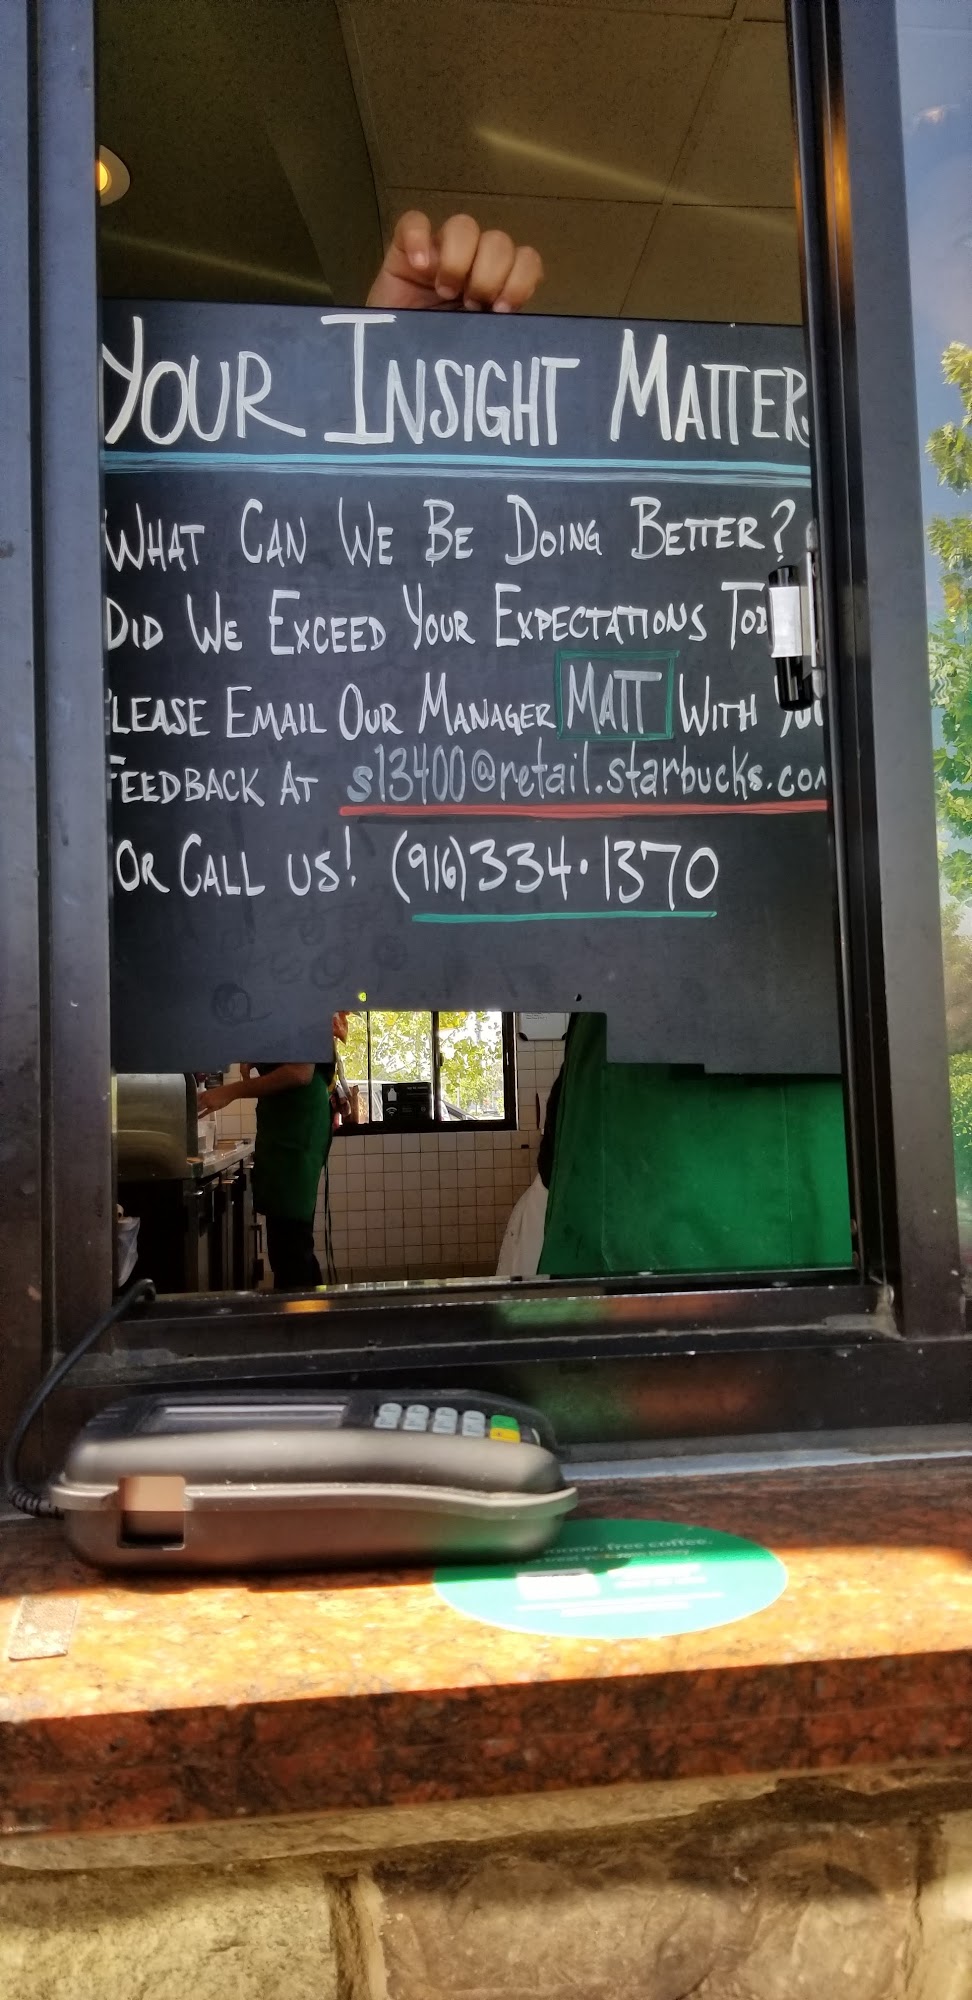 YOUR INSIGHT MATTERS
WHAT CAN WE BE DOING BETTER?
DID WE EXCEED YOUR EXPECTATIONS TOD
PLEASE EMAIL OUR MANAGER MATT WITH YOU
FEEDBACK AT s13400@retail.starbucks.com
OR CALL US! (916)334·1370
free coffee.